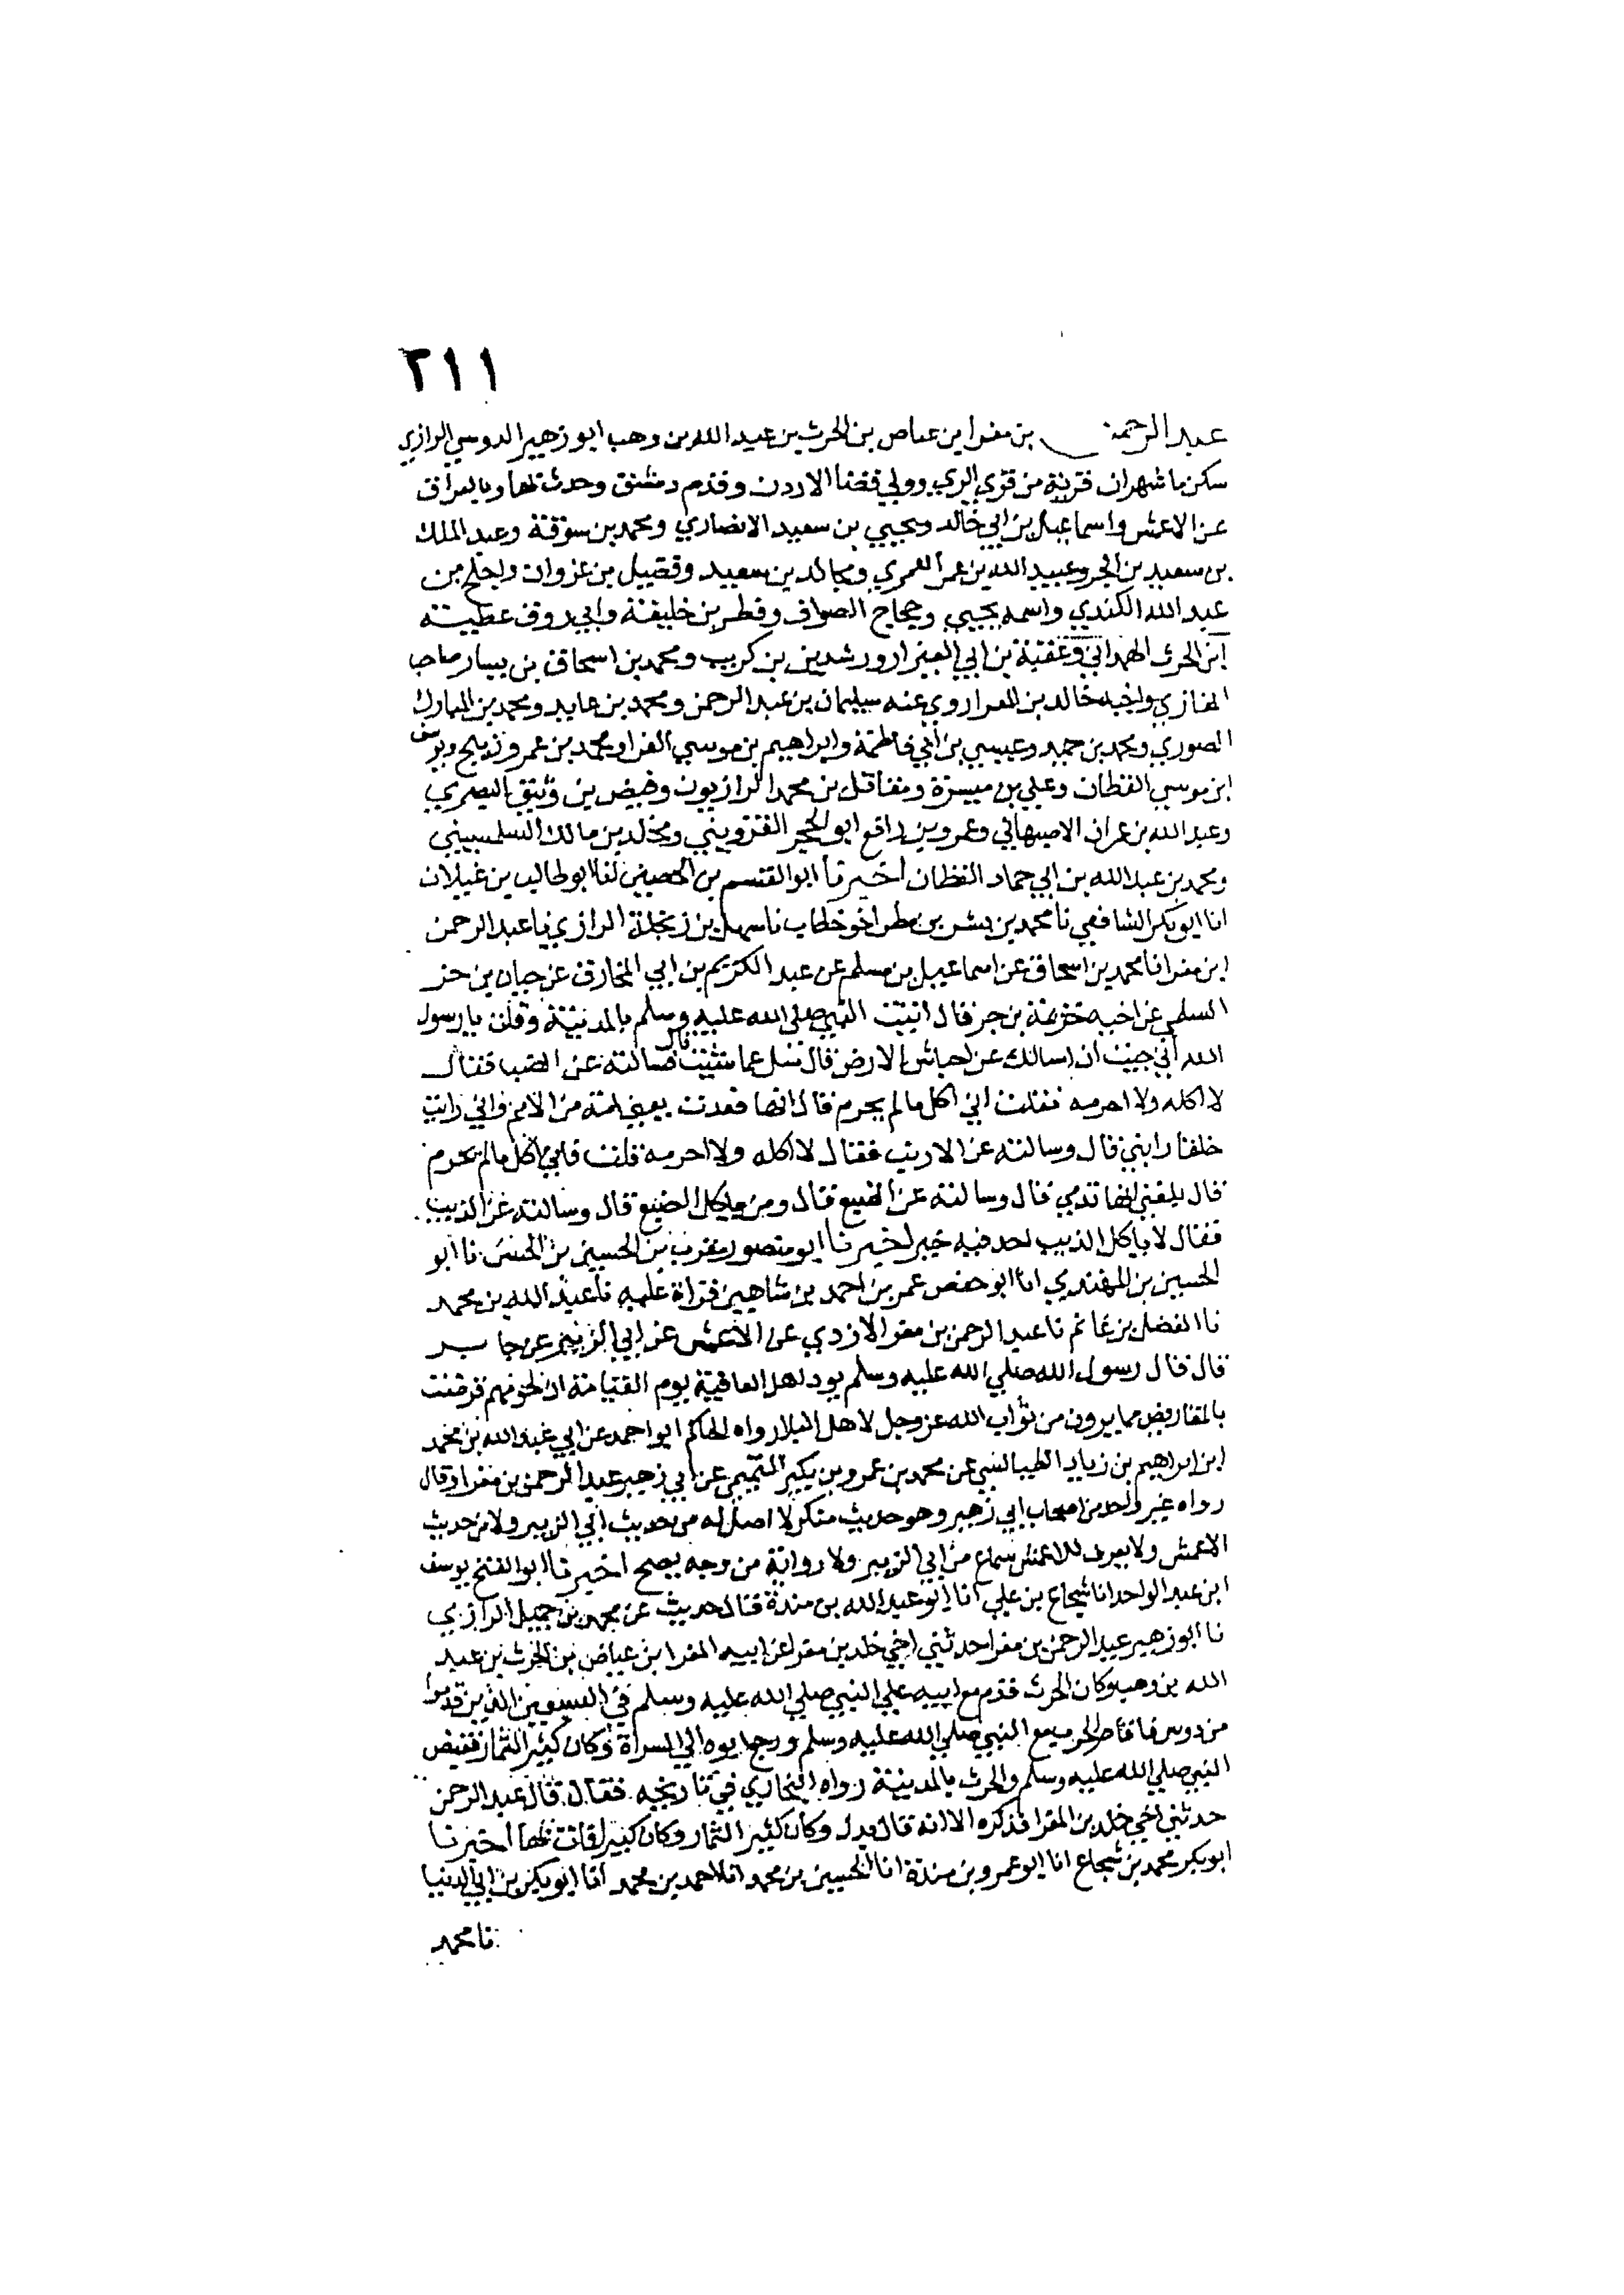 ٢١١
عبد الرحمن بن مغرا بن عياض بن الحرث بن عبد الله بن وهب ابو زهير الدوسي الرازي
سكن ماشهران قرية من قري الري وولي قضا الاردن وقدم دمشق وحدث بها وبالعراق
عن الاعمش واسماعيل بن ابي خالد ويحيي بن سعيد الانصاري ومحمد بن سوقة وعبد الملك
بن سعيد بن ابجر وعبيد الله بن عمر العمري ومجالد بن سعيد وفضيل بن غزوان واجلح بن
عبد الله الكندي واسمه يحيي وحجاج الصواف وفطر بن خليفة وابي روق عطية
ابن الحرث الهمداني وعقبة بن ابي العيزار ورشدين بن كريب ومحمد بن اسحاق بن يسار صاحب
المغازي واخيه خالد بن المغرا روي عنه سليمان بن عبد الرحمن ومحمد بن عايد ومحمد بن المبارك
الصوري ومحمد بن حميد وعيسي بن ابي فاطمة وابراهيم بن موسي الفرا ومحمد بن عمرو زنيج ويوسف
ابن موسي القطان وعلي بن ميسرة ومقاتل بن محمد الرازيون وخبيض بن وثيق البصري
وعبد الله بن عمران الاصبهاني وعمرو بن رافع ابو الحجر القزويني ومخلد بن مالك السلمسيني
ومحمد بن عبد الله بن ابي حماد القطان اخبرنا ابو القسم بن الحصين انا ابو طالب بن غيلان
انا ابو بكر الشافعي نا محمد بن بشر بن مطر اخو خطاب نا سهل بن زنجلة الرازي نا عبد الرحمن
ابن مغرا نا محمد بن اسحاق عن اسماعيل بن مسلم عن عبد الكريم بن ابي المخارق عن حبان بن جز
السلمي عن اخيه خزيمة بن جز قال اتيت النبي صلي الله عليه وسلم بالمدينة وقلت يا رسول
الله اني جيت ان اسالك عن احناش الارض قال سل عما شئت قال فسالته عن الضب فقال
لا اكله ولا احرمه فقلت اني اكل ما لم يحرم قال انها فقدت يعني امة من الامم واني رايت
خلقا رابني قال وسالته عن الارنب فقال لا اكله ولا احرمه قلت فاني اكل ما لم يحرم
قال بلغني انها تدمي قال وسالته عن الضبع فقال ومن ياكل الضبع قال وسالته عن الذيب
فقال لا ياكل الذيب احد فيه خير اخبرنا ابو منصور مقرب بن الحسين بن الحسن نا ابو
الحسين بن المهتدي انا ابو حفص عمر بن احمد بن شاهين قراة عليه نا عبد الله بن محمد
نا الفضل بن غانم نا عبد الرحمن بن مغرا الازدي عن الاعمش عن ابي الزبير عن جابر
قال قال رسول الله صلي الله عليه وسلم يود اهل العافية يوم القيامة ان لحومهم قرضت
بالمقاريض مما يرون من ثواب الله عز وجل لاهل البلا رواه الحاكم ابو احمد عن ابي عبد الله بن محمد
ابن ابراهيم بن زياد الطيالسي عن محمد بن عمرو بن بكير التميمي عن ابي زهير عبد الرحمن بن مغرا وقال
رواه غير واحد من اصحاب ابي زهير وهو حديث منكر لا اصل له من حديث ابي الزبير ولا من حديث
الاعمش ولا يعرف للاعمش سماع من ابي الزبير ولا رواية من وجه يصح اخبرنا ابو الفتح يوسف
ابن عبد الواحد انا شجاع بن علي انا ابو عبد الله بن مندة قال حديث عن محمد بن حميد الرازي
نا ابو زهير عبد الرحمن بن مغرا حدثني اخي خلد بن مغرا عن ابيه المغرا بن عياض بن الحرث بن عبد
الله بن وهب وكان الحرث قدم مع ابيه علي النبي صلي الله عليه وسلم في السبعين الذين قدموا
من دوس فاقام الحرث مع النبي صلي الله عليه وسلم ورجع ابوه الي السراة وكان كثير الثمار فقبض
النبي صلي الله عليه وسلم والحرث بالمدينة رواه البخاري في تاريخه فقال قال عبد الرحمن
حدثني اخي خلد بن المغرا فذكره الا انه قال بدل وكان كثير الثمار وكان كبيرا فمات بها اخبرنا
ابو بكر محمد بن شجاع انا ابو عمرو بن مندة انا الحسين بن محمد انا احمد بن محمد انا ابو بكر بن ابي الدنيا
نا محمد